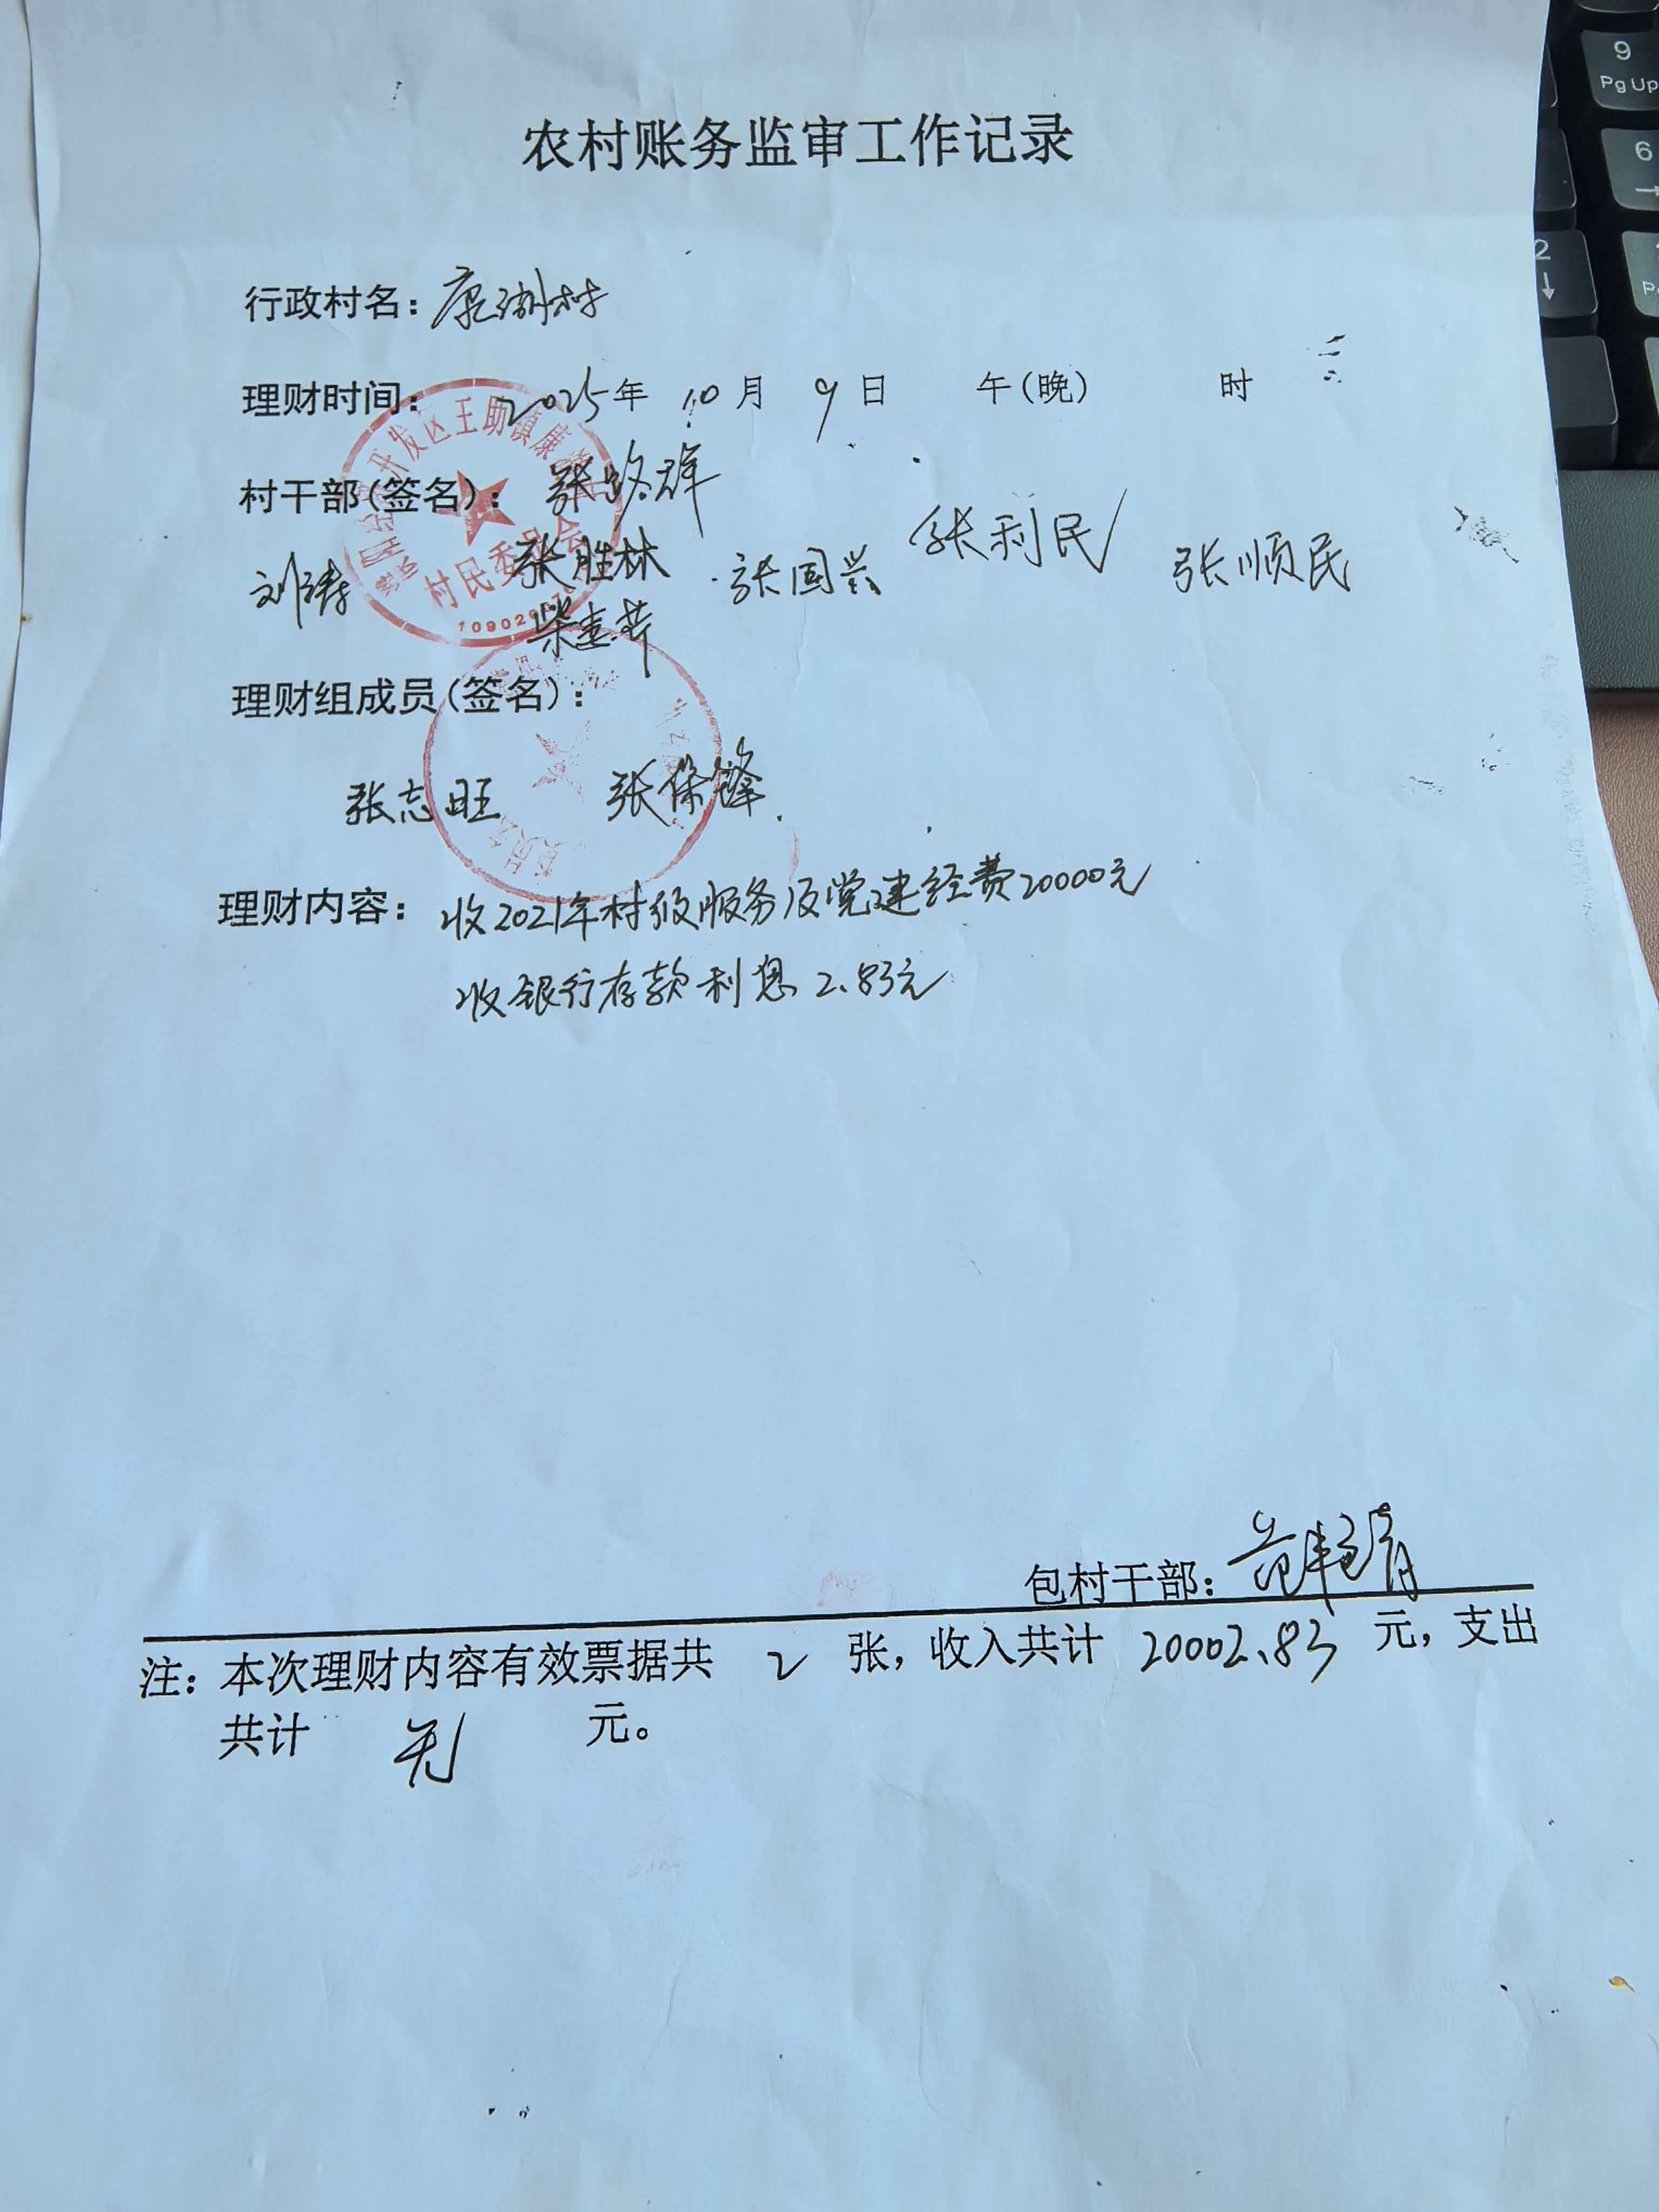 农村账务监审工作记录
行政村名：康湖村
理财时间： 2025年 10月 9日 午(晚) 时
村干部(签名)：张路群
刘涛 张胜林 张国兴 张利民 张顺民
理财组成员(签名)：
张志旺 张保锋
理财内容：收2021年村级服务及党建经费20000元
收银行存款利息2.83元
包村干部：
注：本次理财内容有效票据共 2 张，收入共计 20002.83 元，支出
共计 无 元。
开发区王助镇康
村民委员会
9
PgUp
6
2